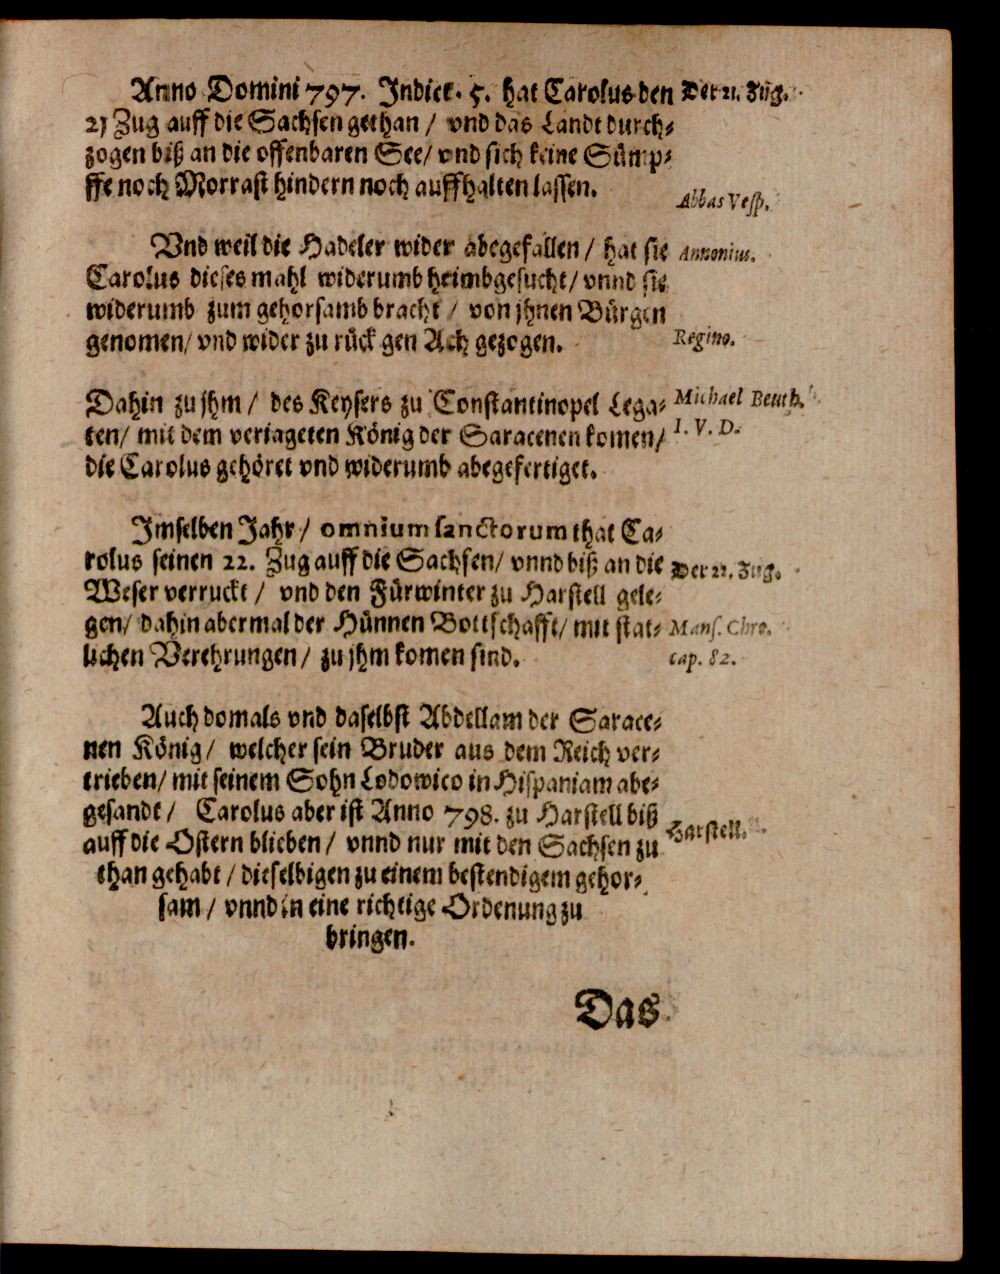 Anno Domini 797. Indict. 5. hat Carolus den
Der 21. Zug.
21 Zug auff die Sachsen gethan / vnd das Landt durch-
zogen biß an die offenbaren See / vnd sich keine Sümp-
ffe noch Morrast hindern noch auffhalten lassen.
Abbas Vesp.
Vnd weil die Hadeler wider abegefallen / hat sie
Annonius.
Carolus dieses mahl widerumb heimbgesucht / vnnd sie
widerumb zum gehorsamb bracht / von jhnen Bürgen
genomen / vnd wider zu rück gen Ach gezogen.
Regino.
Dahin zu jhm / des Keysers zu Constantinopel Lega-
Michael Beuth.
ten / mit dem veriageten König der Saracenen komen /
I. V. D.
die Carolus gehöret vnd widerumb abegefertiget.
Imselben Jahr / omnium sanctorum that Ca-
rolus seinen 22. Zug auff die Sachsen / vnnd biß an die
Der 22. Zug.
Weser verruckt / vnd den Fürwinter zu Harstell gele-
gen / dahin abermal der Hünnen Bottschafft / mit stat-
Mans. Chro.
lichen Verehrungen / zu jhm komen sind.
cap. 82.
Auch domals vnd daselbst Abdellam der Sarace-
nen König / welcher sein Bruder aus dem Reich ver-
trieben / mit seinem Sohn Lodowico in Hispaniam abe-
gesandt / Carolus aber ist Anno 798. zu Harstell biß
Harstell.
auff die Ostern blieben / vnnd nur mit den Sachsen zu
than gehabt / dieselbigen zu einem bestendigem gehor-
sam / vnnd in eine richtige Ordenung zu
bringen.
Das